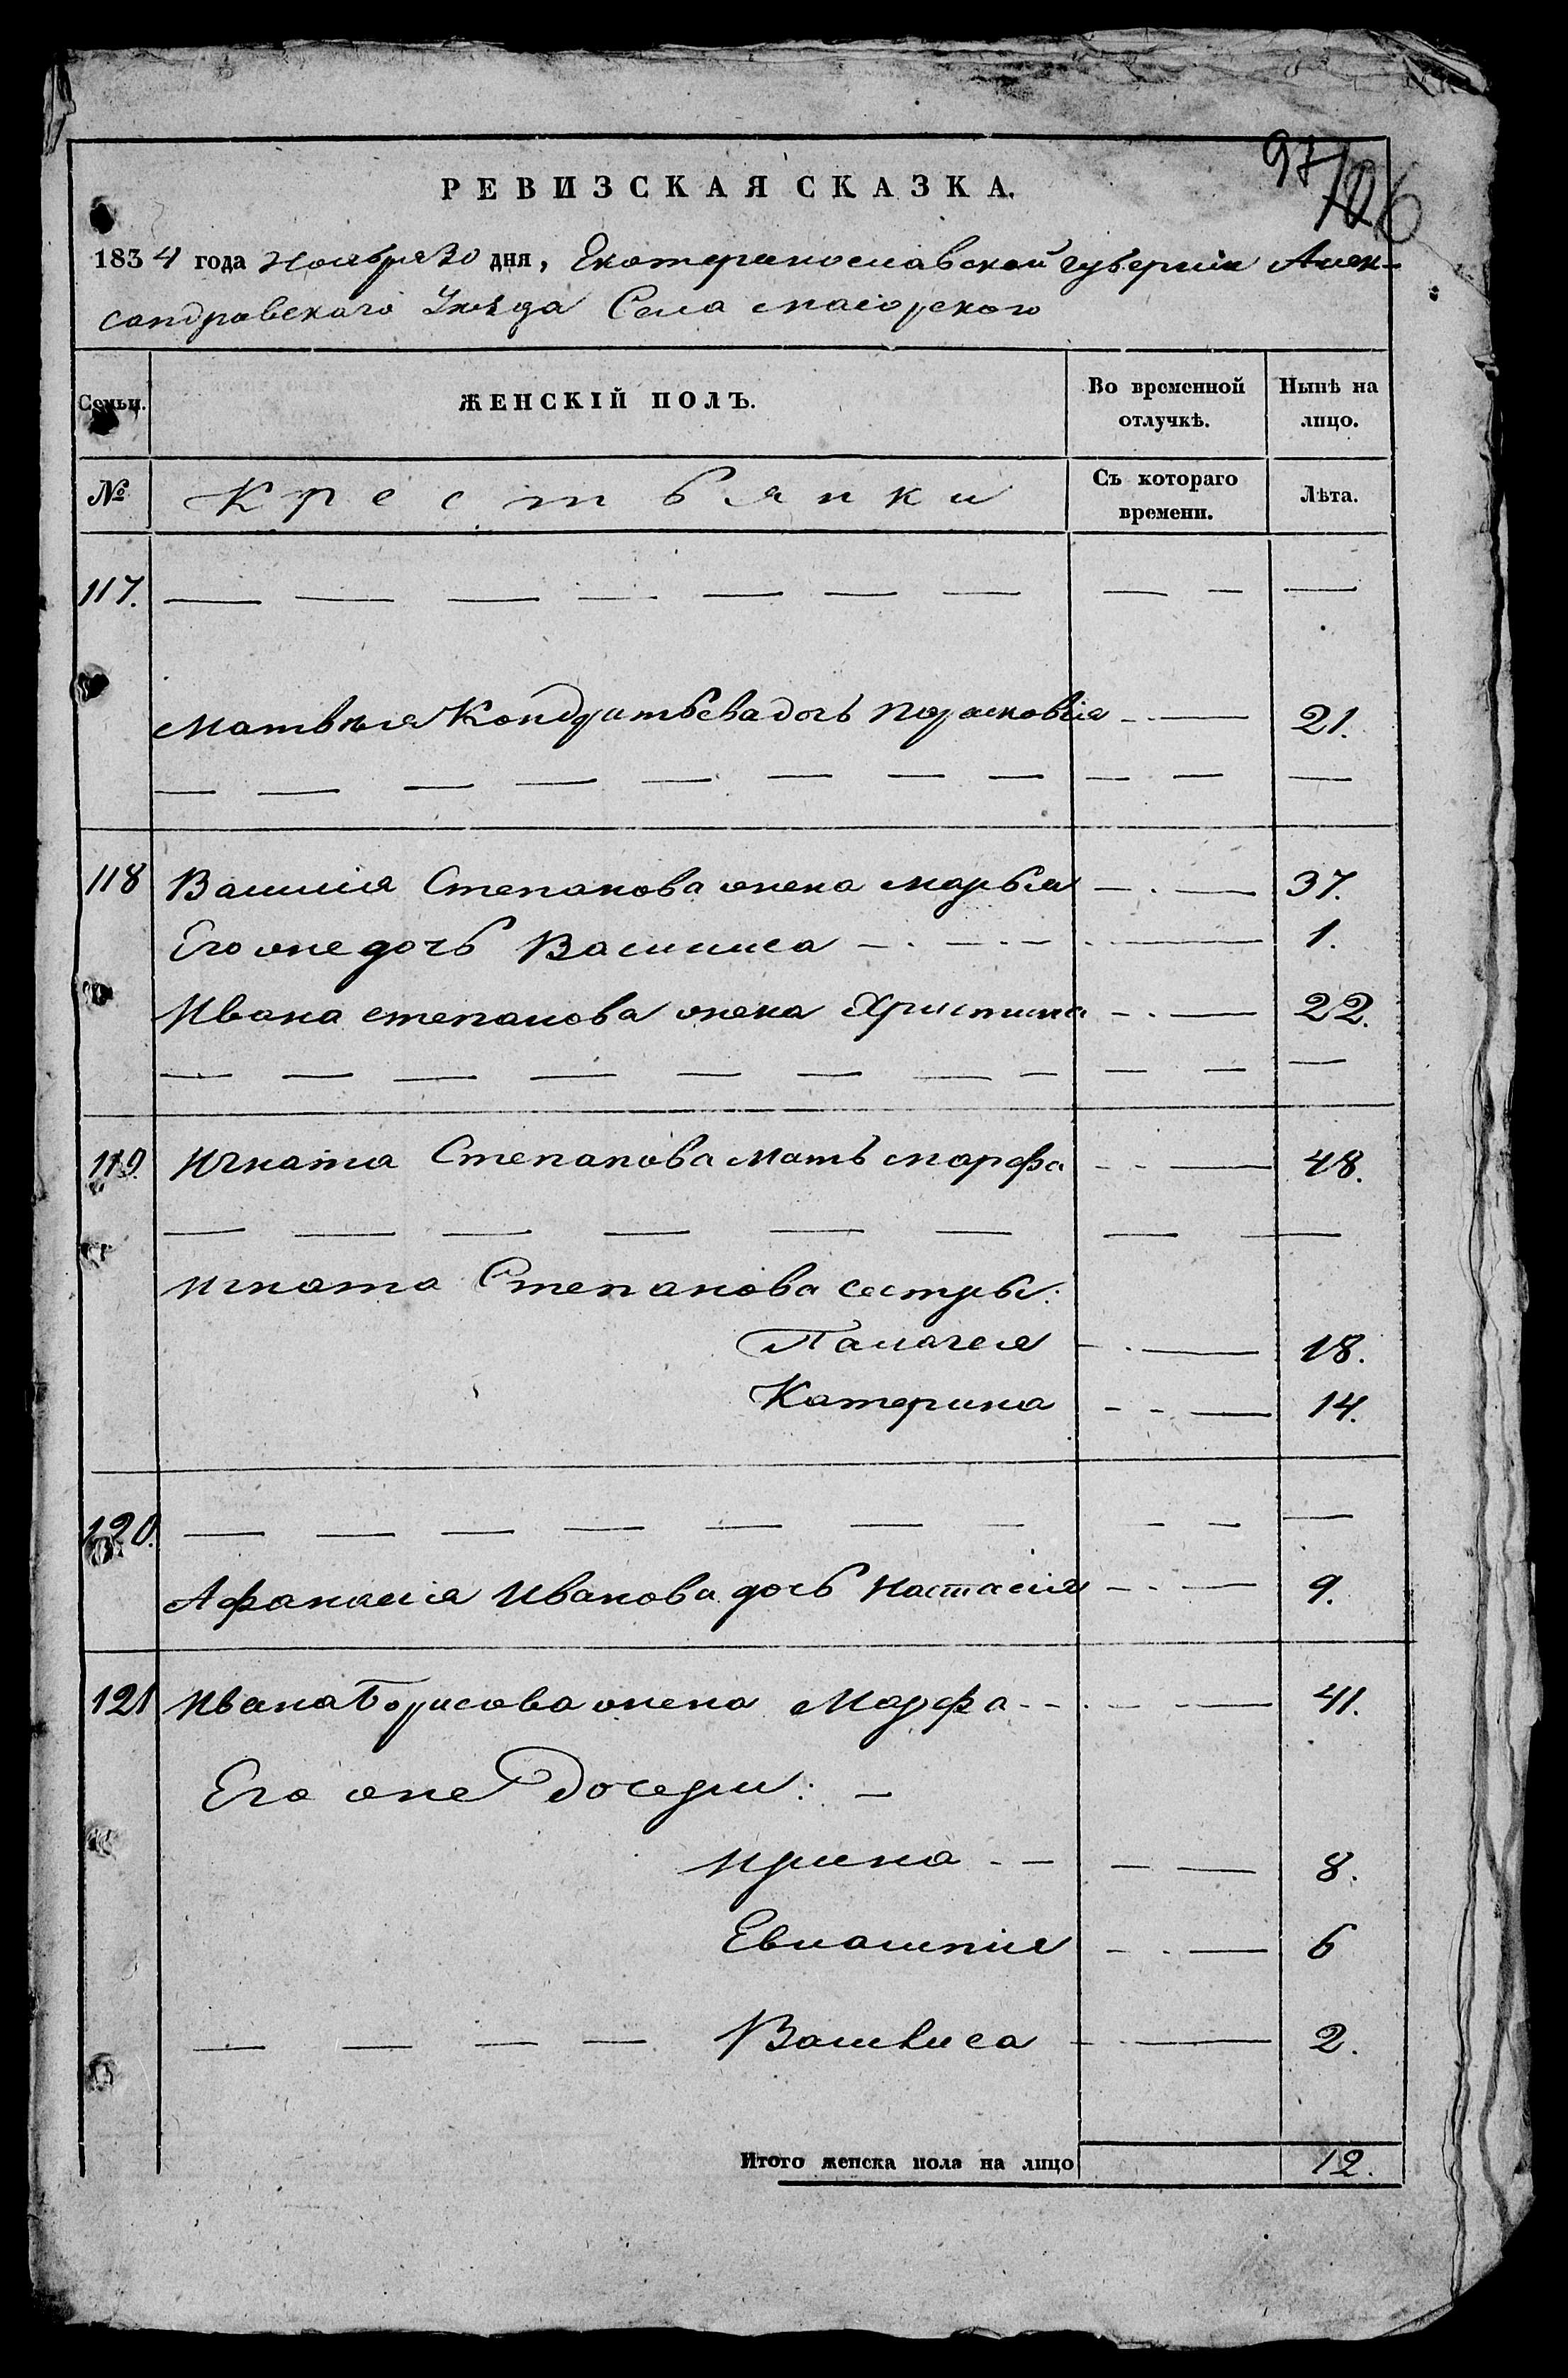 97
106
РЕВИЗСКАЯ СКАЗКА.
1834 года Ноября 30 дня, Екатеринославской губернiи Алек-
сандровскаго Уѣзда Села Маiорскаго
Семьи. ЖЕНСКІЙ ПОЛЪ. Во временной отлучкѣ. Нынѣ на лицо.
№ Крестьянки Съ котораго времени. Лѣта.
117. — — — — — — — — — —
Матвѣя Кондратьева дочь Парасковiя - . — 21.
— — — — — — — — — —
118 Василiя Степанова жена Марья — . — 37.
Его же дочь Василиса — . — . — . — 1.
Ивана Степанова жена Христина — . — 22.
— — — — — — — — — — —
119. Игната Степанова мать Марфа - - — 48.
— — — — — — — —
Игната Степанова сестры:
Палагея - . — 18.
Катерина - - — 14.
120. — — — — — — — — — —
Афанасiя Иванова дочь Настасiя — . — 9.
121 Ивана Борисова жена Марфа - - . - - — 41.
Его же дочери: —
Ирина - — — — 8.
Евлампия — . — 6
— — — — Василиса - . — 2.
Итого женска пола на лицо 12.